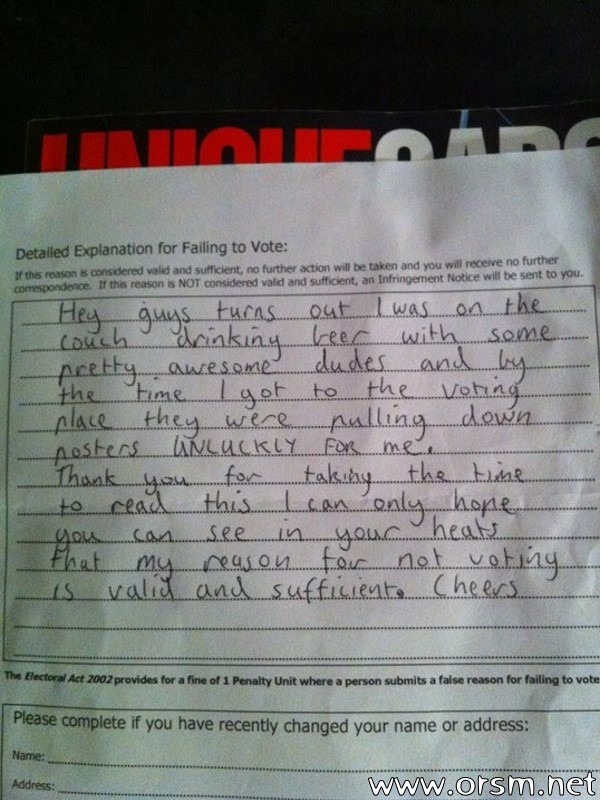 UNIQUE CARS
Detailed Explanation for Failing to Vote:
If this reason is considered valid and sufficient, no further action will be taken and you will receive no further
correspondence. If this reason is NOT considered valid and sufficient, an Infringement Notice will be sent to you.
Hey guys turns out I was on the
couch drinking beer with some
pretty awesome dudes and by
the time I got to the voting
place they were pulling down
posters UNLUCKLY FOR me.
Thank you for taking the time
to read this I can only hope
you can see in your heats
that my reason for not voting
is valid and sufficient. Cheers
The Electoral Act 2002 provides for a fine of 1 Penalty Unit where a person submits a false reason for failing to vote
Please complete if you have recently changed your name or address:
Name:
Address:
www.orsm.net